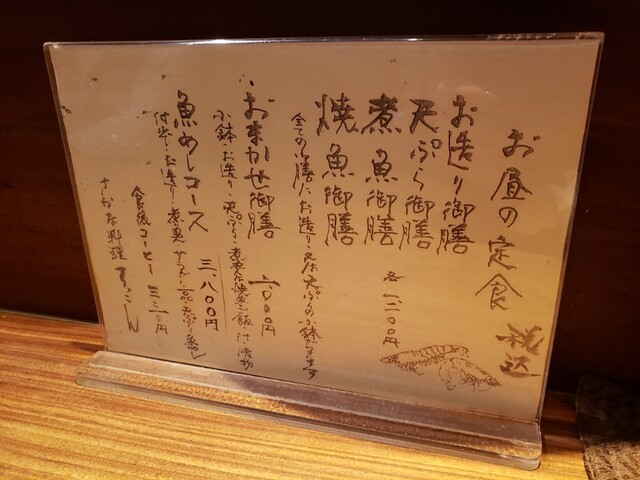 お昼の定食
税込
お造り御膳
天ぷら御膳
煮魚御膳
焼魚御膳
各 一二〇〇円
全ての御膳にお造り又は天ぷらの小鉢
おまかせ御膳 一六〇〇円
小鉢・お造り・天ぷら・煮魚又は焼魚・ご飯・汁・漬物
魚めしコース 三、八〇〇円
付出し・お造り・煮魚 サラダ 天ぷら
食後コーヒー 三三〇円
さかな料理